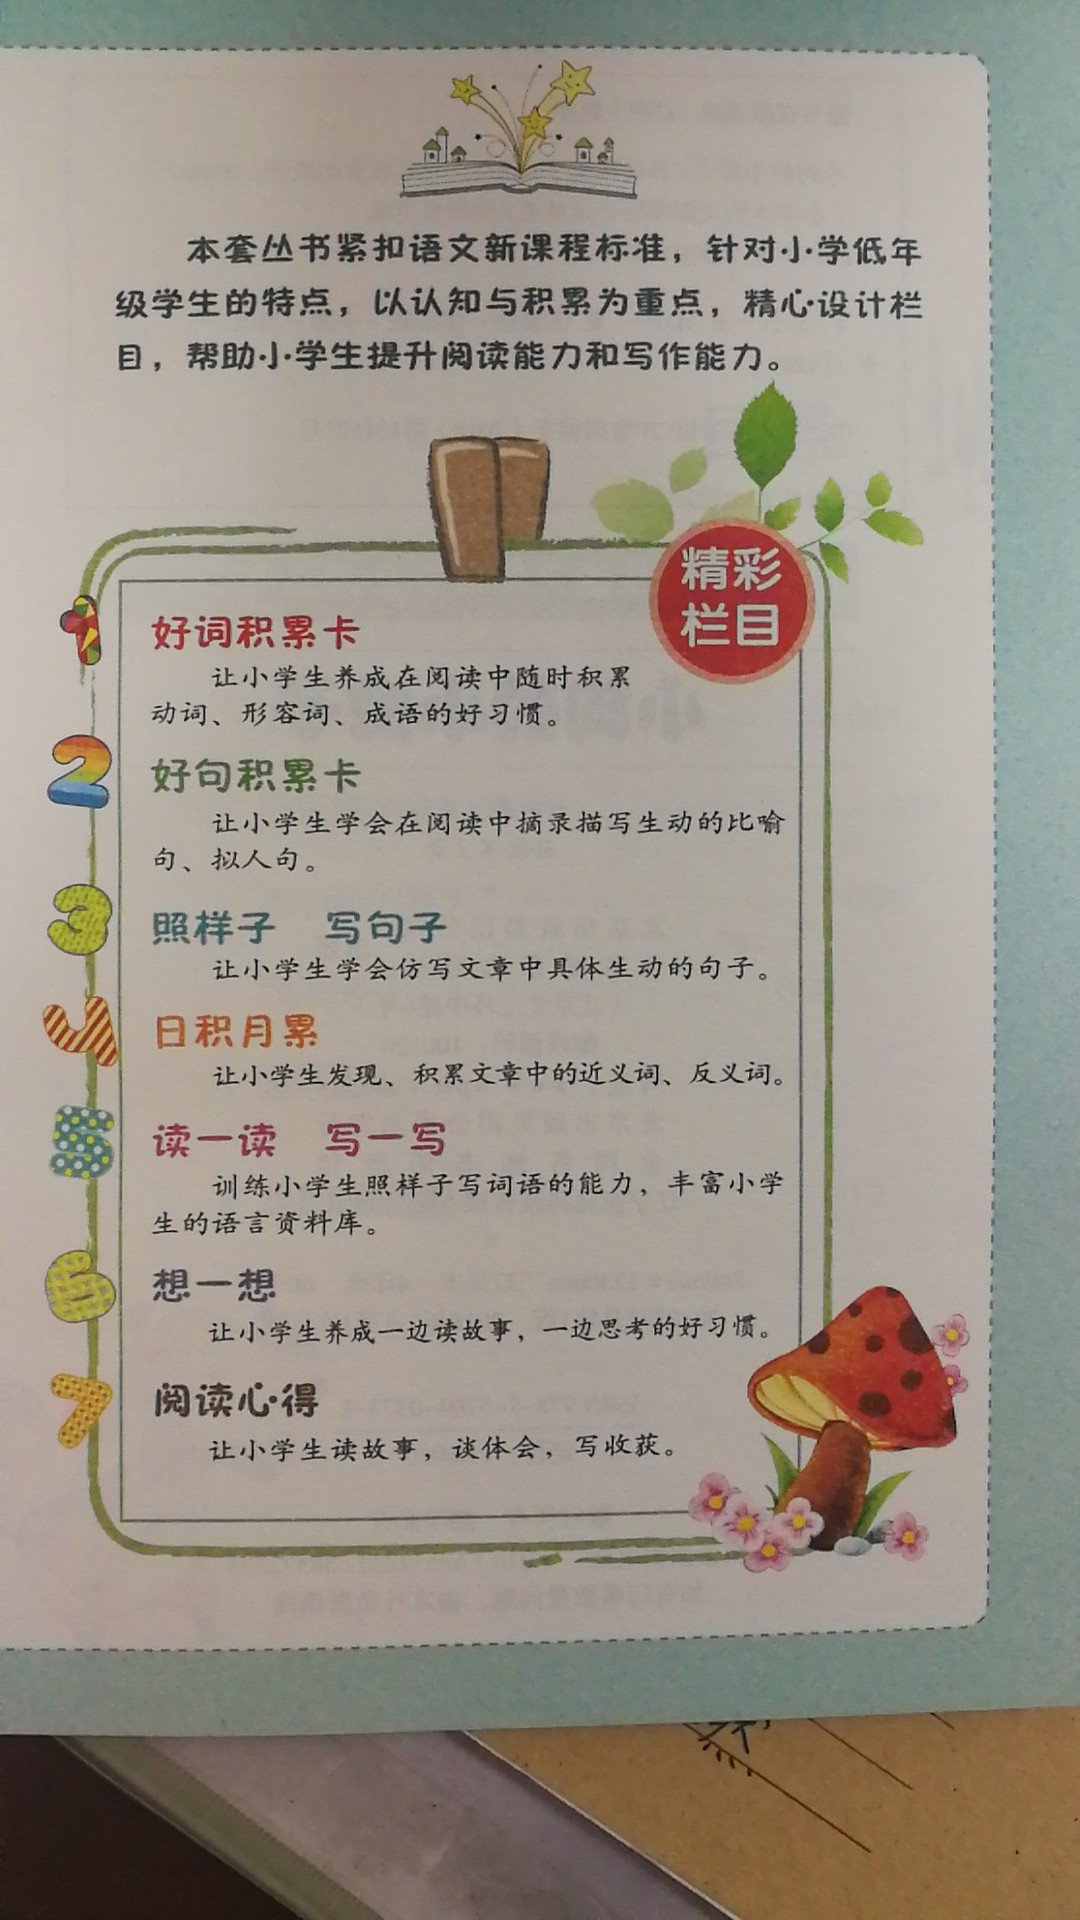 本套丛书紧扣语文新课程标准，针对小学低年
级学生的特点，以认知与积累为重点，精心设计栏
目，帮助小学生提升阅读能力和写作能力。
精彩
栏目
1
好词积累卡
让小学生养成在阅读中随时积累
动词、形容词、成语的好习惯。
2
好句积累卡
让小学生学会在阅读中摘录描写生动的比喻
句、拟人句。
3
照样子 写句子
让小学生学会仿写文章中具体生动的句子。
4
日积月累
让小学生发现、积累文章中的近义词、反义词。
5
读一读 写一写
训练小学生照样子写词语的能力，丰富小学
生的语言资料库。
6
想一想
让小学生养成一边读故事，一边思考的好习惯。
7
阅读心得
让小学生读故事，谈体会，写收获。